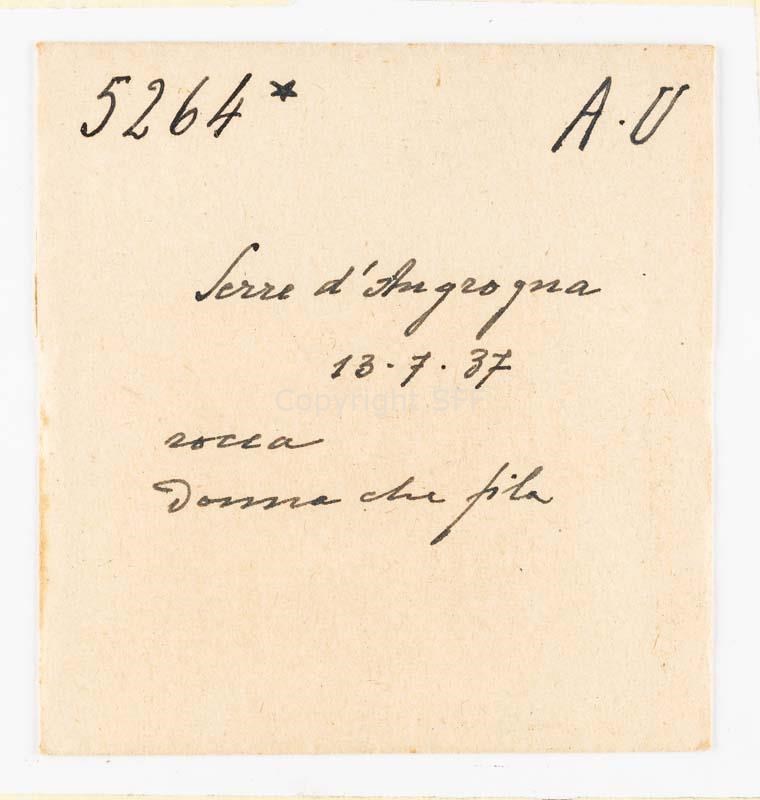 5264* A.U
Serre d'Angrogna
13.7.37
Copyright SPF
rocca
Donna che fila